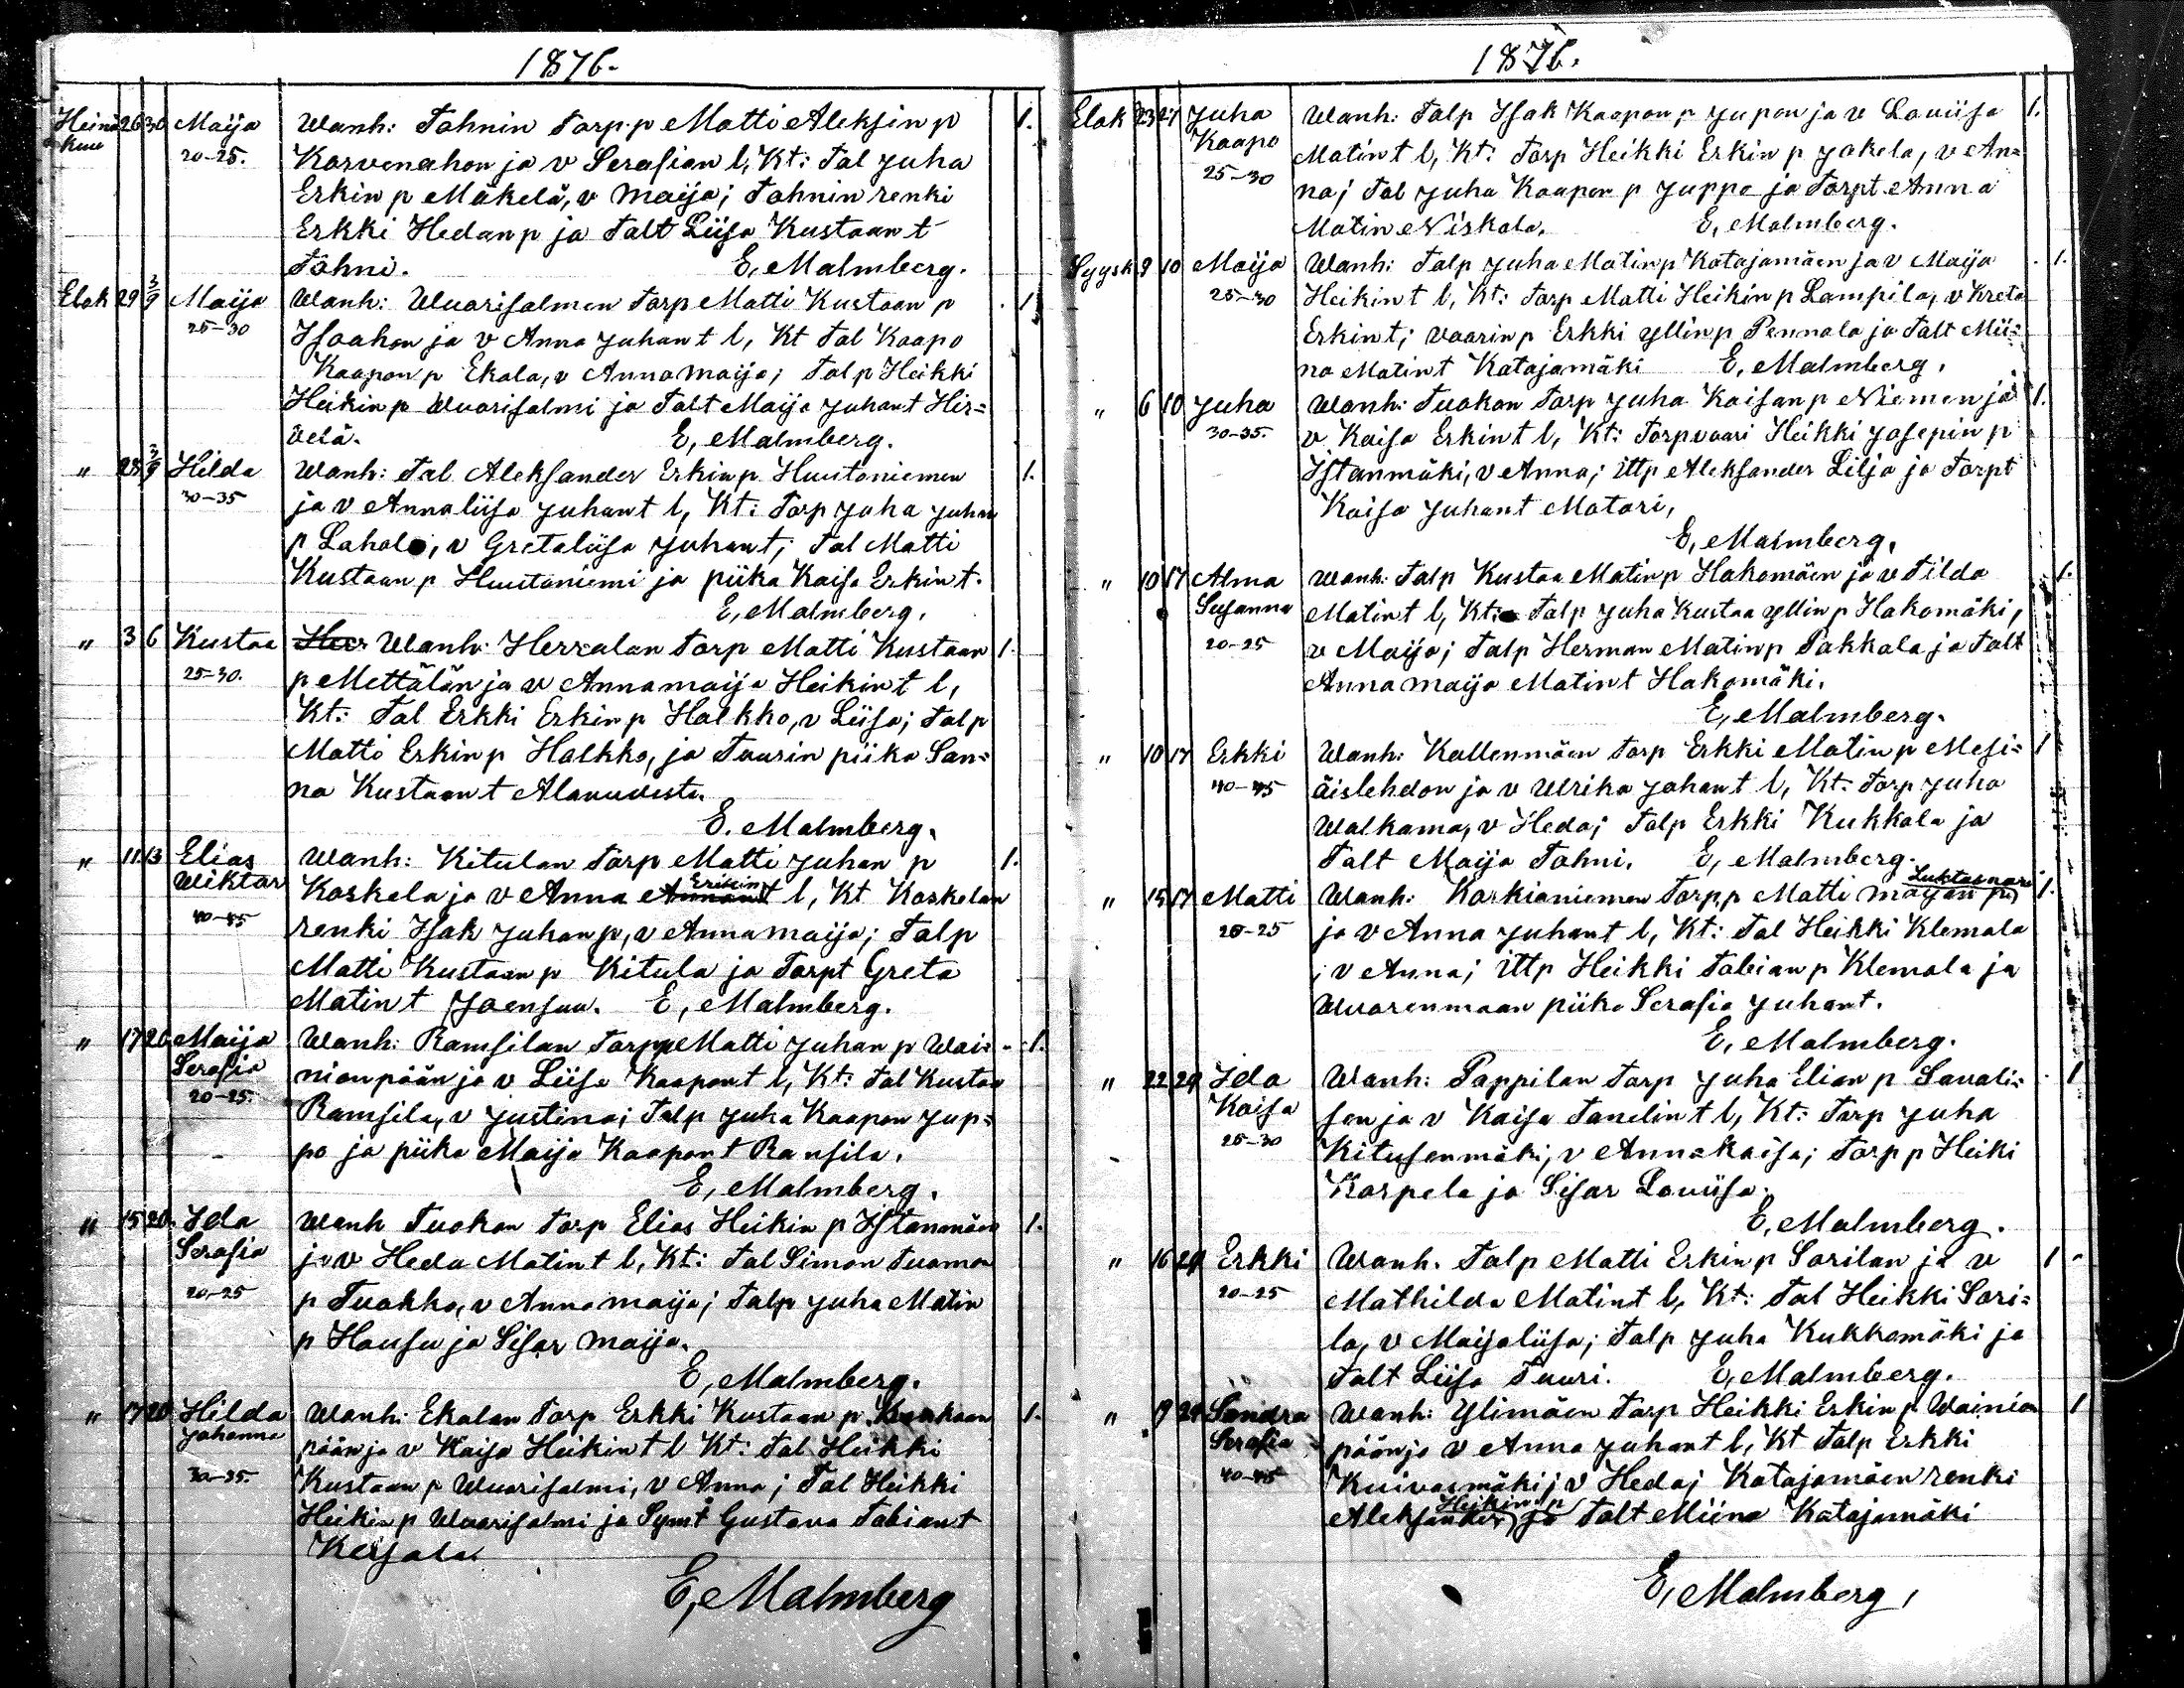 1876.
Heinä kuu 26 30 Maija Wanh: Tahnin Torp.p Matti Aleksin p 1.
20-25. Korvenahon ja v Serafian l, Kt: Tal Juha
Erkin p Mäkelä, v Maija; Tahnin renki
Erkki Hedan p ja Talt Liisa Kustaan t
Tähni. E, Malmberg.
Elok 29 3/9 Maija Wanh: Wuorisalmen Torp Matti Kustaan p 1
25-30 Isoahon ja v Anna Juhan t l, Kt Tal Kaapo
Kaapon p Ekola, v Annamaija; Talp Heikki
Heikin p Wuorisalmi ja Talt Maija Juhant Hir=
velä. E, Malmberg.
" 28 3/9 Hilda Wanh: Tal Aleksander Erkin p Huutoniemen 1.
30-35 ja v Annaliisa Juhant l, Kt: Torp Juha Juhan
p Lahola, v Gretaliisa Juhant; Tal Matti
Kustaan p Huutoniemi ja piika Kaisa Erkint.
E, Malmberg.
" 3 6 Kustaa Wanh: Herralan Torp Matti Kustaan 1.
25-30. p Mettälän ja v Annamaija Heikint l,
Kt: Tal Erkki Erkin p Halkko, v Liisa; Talp
Matti Erkin p Halkko, ja Tuurin piika San=
na Kustaant Alavuvesta.
E. Malmberg.
" 11 13 Elias Wanh: Kitulan Torp Matti Juhan p 1.
Wiktor Koskela ja v Anna Erikin t l, Kt Koskelan
40-45 renki Isak Juhan p, v Annamaija; Talp
Matti Kustaan p Kitula ja Torpt Greta
Matin t Joensuu. E, Malmberg.
" 17 20 Maija Wanh: Ramsilan Torpp Matti Juhan p Wai= 1.
Serafia nionpään ja v Liisa Kaapont l, Kt: Tal Kustaa
20-25. Ramsila, v Justina; Talp Juha Kaapon Jup=
po ja piika Maija Kaapont Ransila.
E, Malmberg.
" 15 20. Ida Wanh Tuokon Torp Elias Heikin p Istanmäen 1.
Serafia ja v Heda Matint l, Kt: Tal Simon Tuomon
20-25 p Tuokko, v Annamaija; Talp Juha Matin
p Hausu ja Sisar Maija.
E, Malmberg.
" 17 20 Hilda Wanh: Ekolan Torp Erkki Kustaan p 1.
Johanna pään ja v Kaisa Heikint l Kt: Tal Heikki
30-35. Kustaan p Wuorisalmi, v Anna; Tal Heikki
Heikin p Wuorisalmi ja Gustava Tobiant
E, Malmberg
1876.
Elok 23 27 Juha Wanh: Talp Isak Kaapon p Jupon ja v Loviisa 1.
Kaapo Matint l, Kt: Torp Heikki Erkin p Jokela, v An=
25-30 na; Tal Juha Kaapon p Juppo ja Torpt Anna
Matin Niskala. E, Malmberg.
Syysk 9 10 Maija Wanh: Talp Juha Matin p Katajamäen ja v Maija 1.
25-30 Heikint l, Kt: Torp Matti Heikin p Lampila, v Kreta
Erkint; vaarin p Erkki Yllin p Pennala ja Talt Mii=
na Matint Katajamäki E, Malmberg.
" 6 10 Juha Wanh: Tuokon Torp Juha Kaisan p Niemen ja 1.
30-35. v Kaisa Erkint l, Kt: Torpvaari Heikki Josepin p
Istanmäki, v Anna; ittp Aleksander Lilja ja Torpt
Kaisa Juhant Matari,
E, Malmberg.
" 10 17 Alma Wanh: Talp Kustaa Matin p Hakomäen ja v Tilda 1.
Susanna Matint l, Kt: Talp Juha Kustaa Yllin p Hakomäki,
20-25 v Maija; Talp Herman Matin p Pakkala ja Talt
Annamaija Matint Hakomäki.
E, Malmberg.
" 10 17 Erkki Wanh: Kallenmäen Torp Erkki Matin p Mesi= 1
40-45 äislehdon ja v Ulrika Johant l, Kt: Torp Juha
Walkama, v Heda; Talp Erkki Kukkola ja
Talt Maija Tohni. E, Malmberg.
" 15 17 Matti Wanh: Korkianiemen Torpp Matti Maijan p 1.
20-25 ja v Anna Juhant l, Kt: Tal Heikki Klemola
, v Anna; ittp Heikki Tobian p Klemola ja
Wuorenmaan piika Serafia Juhant.
E, Malmberg.
" 22 24 Ida Wanh: Pappilan Torp Juha Elian p Savali= 1
Kaisa sen ja v Kaisa Tanelint l, Kt: Torp Juha
25-30 Kitusenmäki, v Annakaisa; Torp p Heiki
Korpela ja Sisar Loviisa.
E, Malmberg.
" 16 24 Erkki Wanh. Talp Matti Erkin p Sorilan ja v 1
20-25 Mathilda Matint l, Kt: Tal Heikki Sori=
la, v Maijaliisa; Talp Juha Kukkomäki ja
Talt Liisa Tuuri. E, Malmberg.
" 19 24 Sandra Wanh: Ylimäen Torp Heikki Erkin p Wainion 1
Serafia pään ja v Anna Juhant l, Kt Talp Erkki
40-45 Kuivasmäki; v Heda; Katajamäen renki
Aleksander Heikin p ja Talt Miina Katajamäki
E, Malmberg,